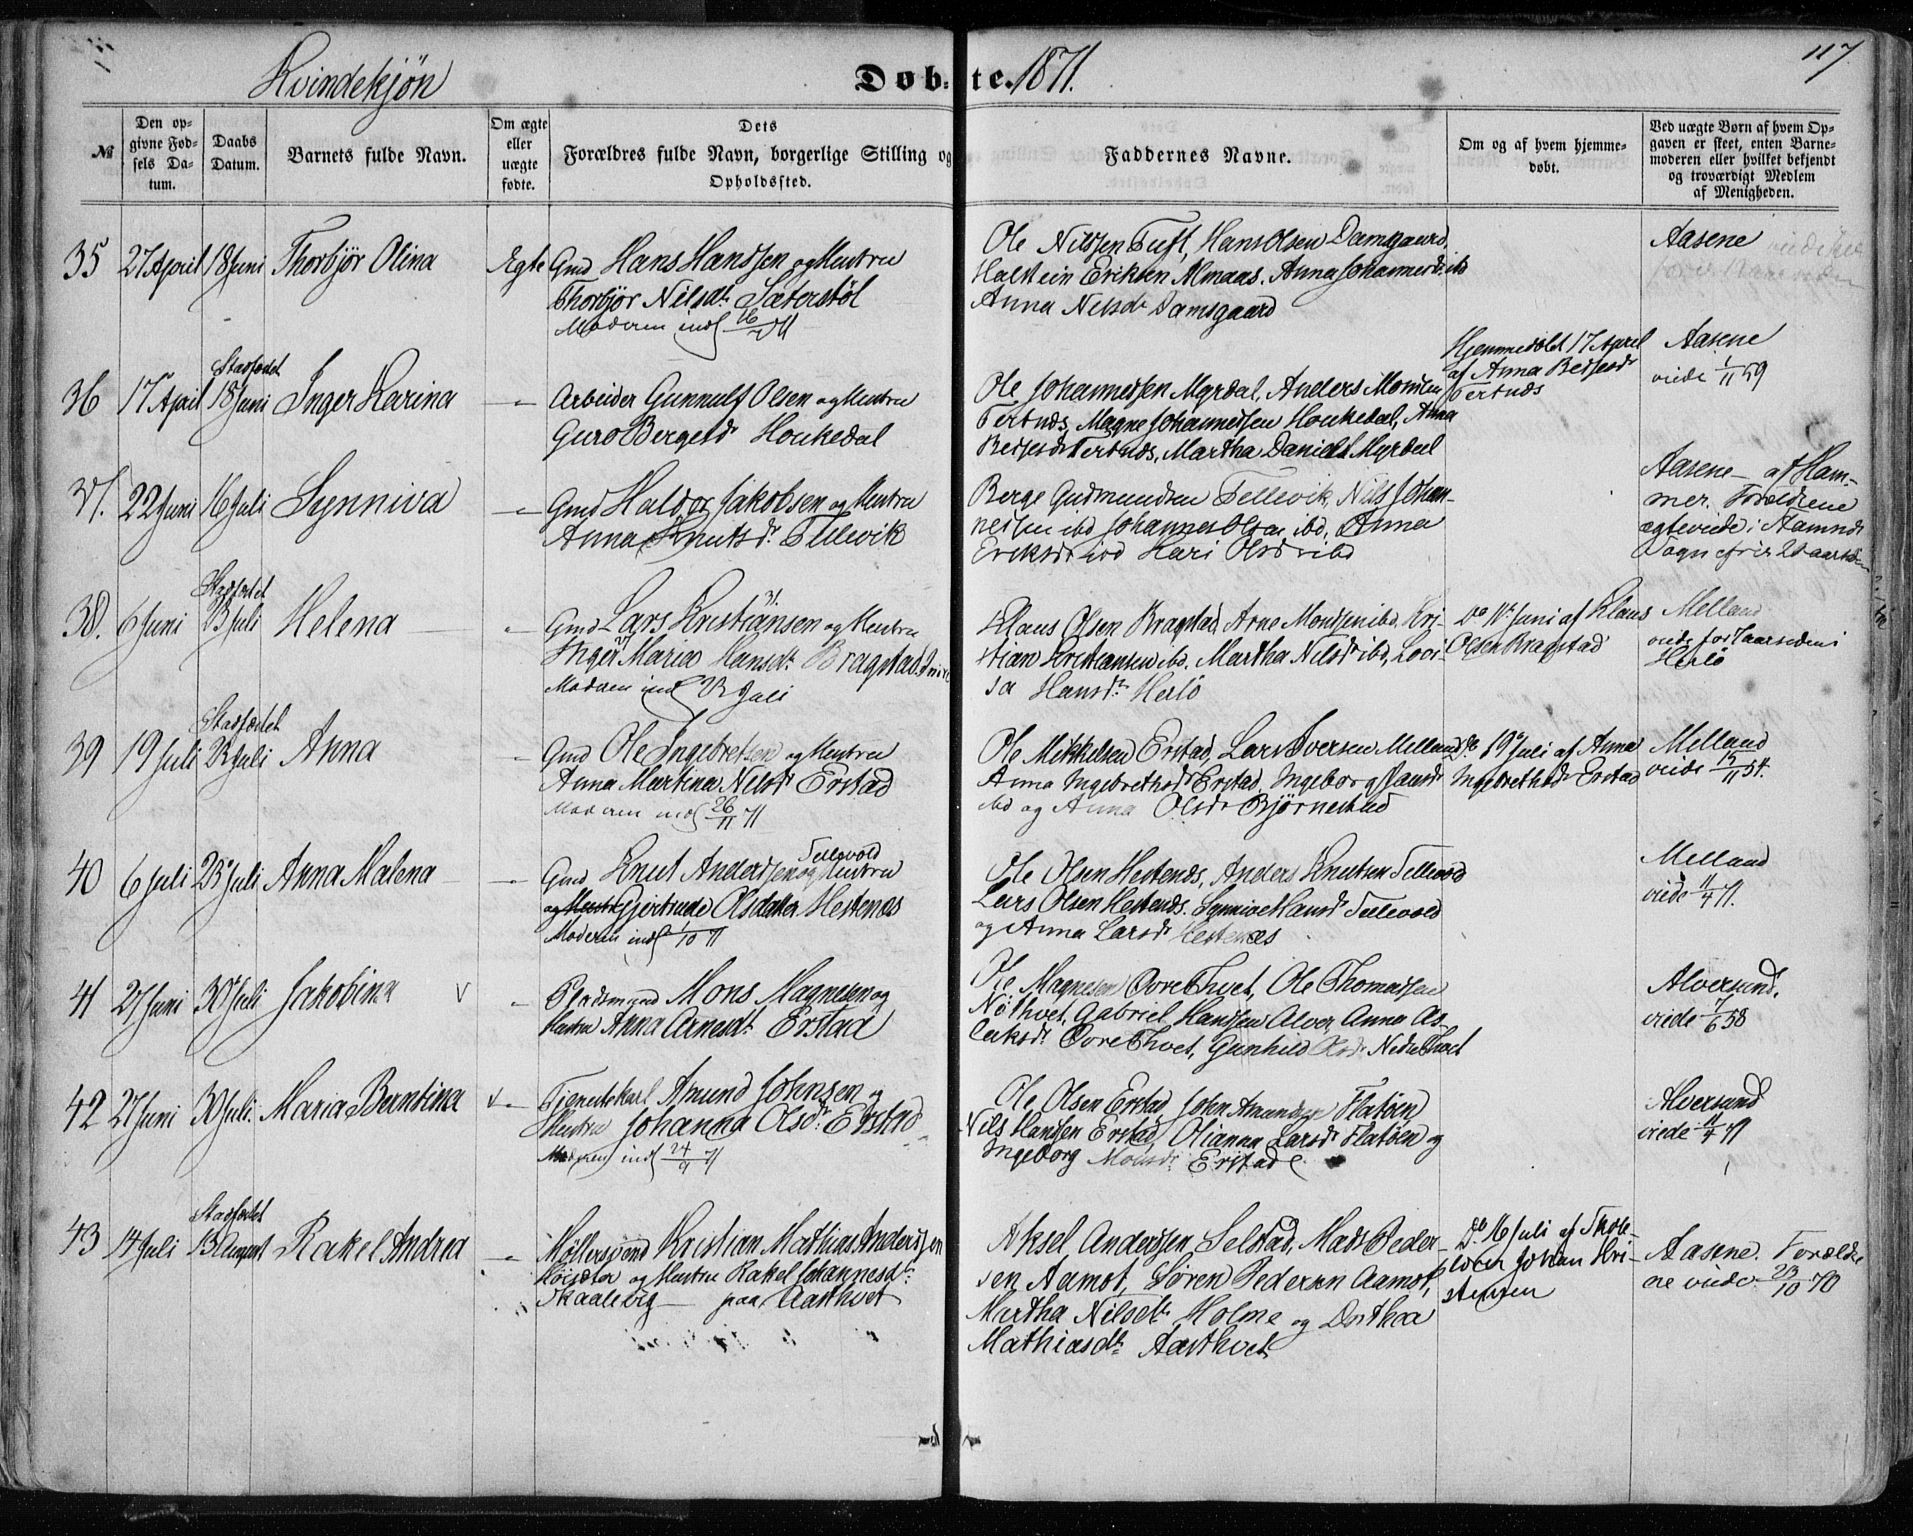 117
Kvindekjøn
Døbte. 1871.
№
Den opgivne Fødsels Datum.
Daabs Datum.
Barnets fulde Navn.
Om ægte eller uægte fødte.
Dets
Forældres fulde Navn, borgerlige Stilling og
Opholdssted.
Faddernes Navne.
Om og af hvem hjemmedøbt.
Ved uægte Børn af hvem Opgaven er skeet, enten Barnemoderen eller hvilket bekjendt og troværdigt Medlem af Menigheden.
35 27 April 18 Juni Thorbjør Olina Ægte Gmd Hans Hansen og Hustru
Thorbjør Nilsdr Sæterstøl
Moderen indl
Ole Nilssen Tuft, Hans Olsen Damsgaard,
Halstein Eriksen Almaas, Anna Johannesdr ibd
Anna Nilsdr Damsgaard
Aasene
36 17 April Stadfæstet 18 Juni Inger Karina — Arbeider Gunnulf Olsen og Hustru
Guro Bergesdr Houkedal
Ole Johannessen Myrdal, Anders Monsen
Tertnæs, Magne Johannessen Houkedal, Anna
Tertnæs, Martha Danielsd Myrdal
Hjemmedøbt 17 April
af Anna
Tertnæs
Aasene
viede 1/11 59
37. 22 Juni 16 Juli Synniva — Gmd Haldor Jakobsen og Hustru
Anna Knutsdr Tellevik
Berge Gudmundsen Tellevik, Nils Johannessen ibd Johannes Olsen ibd, Anna
Eriksdr ibd Kari Olsdr ibd
Aasene — af Hammer. Forældrene
ægteviede i Hamre
38. 6 Juni Stadfæstet 23 Juli Helena — Gmd Lars Kristiansen og Hustru
Inger Maria Hansdr Bragstad
Moderen indl 23 Juli
Klaus Olsen Bragstad, Arne Monsen ibd, Kristian Kristiansen ibd, Martha Nilsdr ibd, Lovisa Hansdr Herlø
Do 11te Juni af Klaus
Olsen Bragstad
Melland
Herlø
39 19 Juli Stadfæstet 23 Juli Anna — Gmd Ole Ingebretsen og Hustru
Anna Martina Nilsdr Erstad
Moderen indl 26/11 71
Ole Mikkelsen Erstad, Lars Iversen Melland
Anna Ingebrethsdr Erstad, Ingeborg Hansdr
ibd og Anna Olsdr Bjørnestad
Do 19de Juli af Anna
Ingebrethsdr Erstad
Melland
viede
40 6 Juli 23 Juli Anna Malena — Gmd Knut Andersen Tellevold og Hustru
Gjertrude Olsdatter Hestenæs
Moderen indl
Ole Olsen Hestenæs, Anders Knutsen Tellevold
Lars Olsen Hestenæs. Synnive Hansdr Tellevold
og Anna Larsdr Hestenæs
Melland
viede 11/4 71.
41 27 Juni 30 Juli Jakobina — Pladsmand Mons Magnesen og
Hustru Anna Arnesdr Erstad
Ole Magnesen Øvre Thvet, Ole Thomassen
Nøthvet, Gabriel Hanssen Alver, Anna Aslaksdr Øvre Thvet, Gunhild Nedre Thvet
Alversund,
viede 7/6 58
42 27 Juni 30 Juli. Maria Berntina — Tjenestekarl Amund Johnsen og
Hustru Johanna Olsdr Erstad
Moderen indl 24/9 71
Ole Olsen Erstad, John Amundsen Flatøen
Nils Hansen Erstad, Olianna Larsdr Flatøen og
Ingeborg Monsdr Erstad
Alversund
viede 11/4 71
43 14 Juli Stadfæstet 13 August Rakel Andrea — Møllersvend Kristian Mathias Anderssen
Høisæter og Hustru Rakel Johannesdr
Skaalevig — paa Aasthvet
Aksel Anderssen, Selstad, Mads Pedersen Aamot, Søren Pedersen Aamot,
Martha Nilsdr Holme og Dorthea
Mathiasdr Aasthvet
Do 16 Juli af Skolelærer Johan Kristensen
Aasene. Forældrene viede 23/10 70